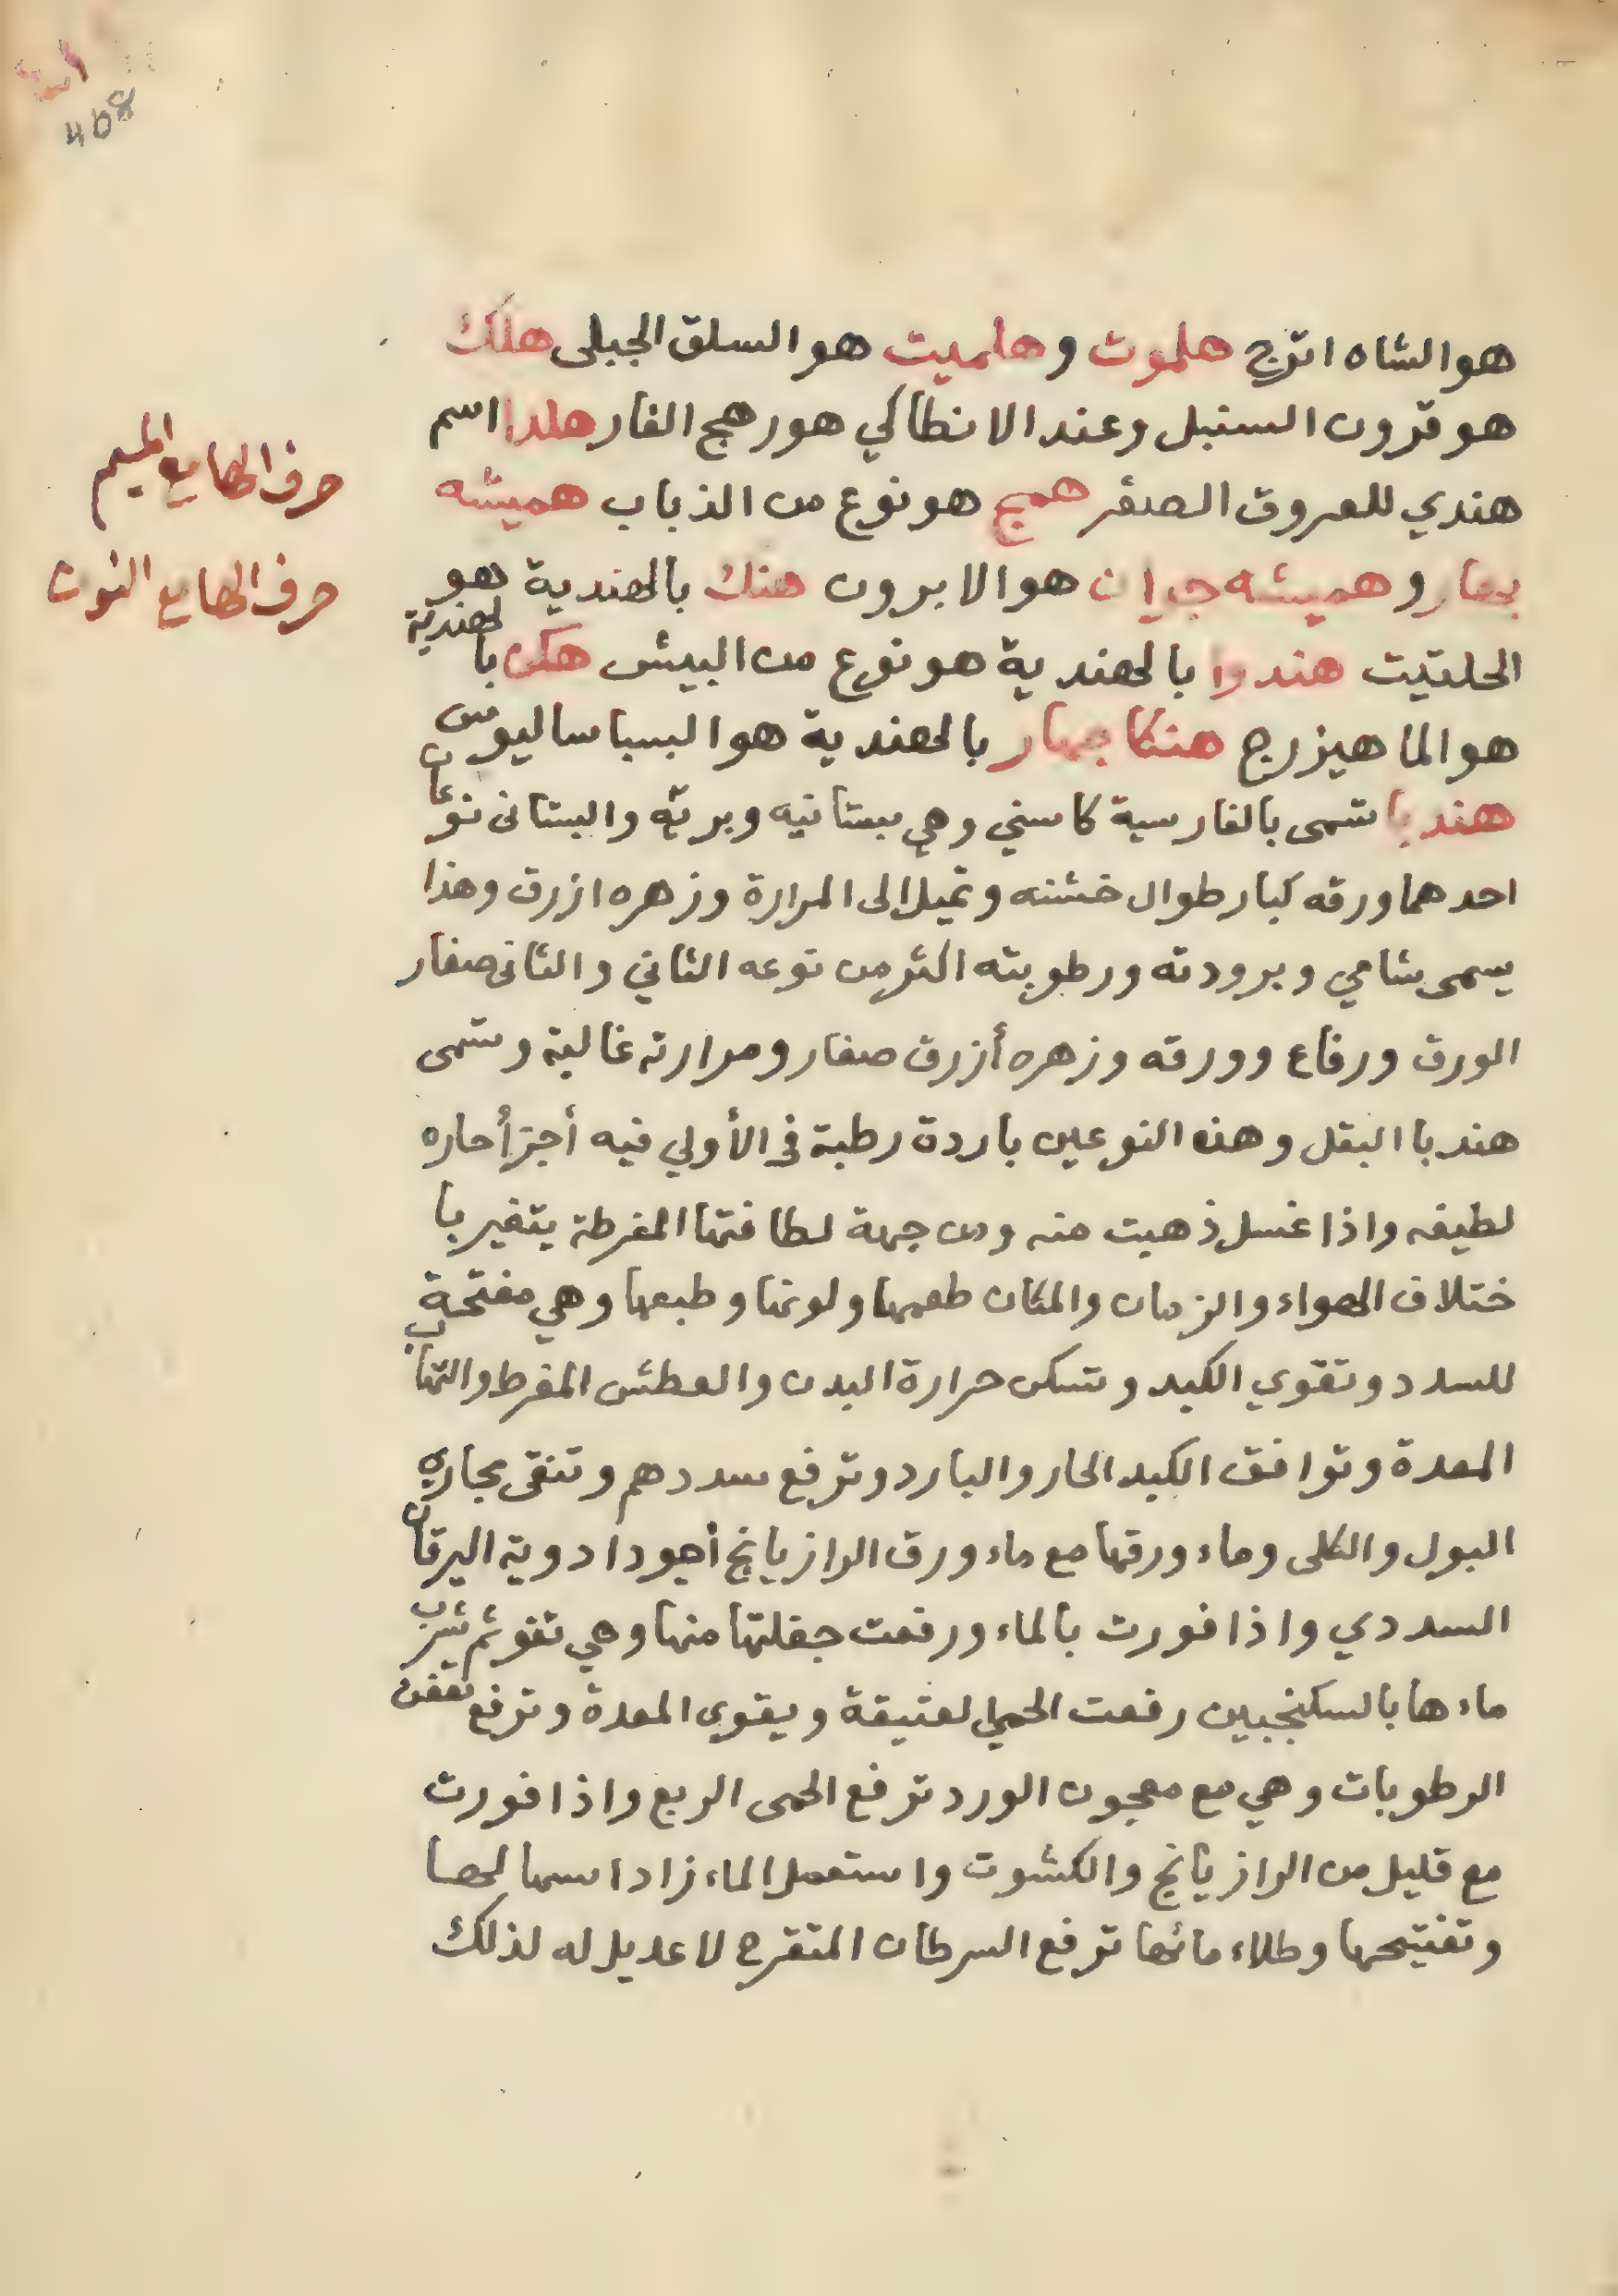 408
هو الشاه اترج هلموت وهلميت هو السلق الجبلى هلك
هو قرون السنبل وعند الانطاكي هو رهج الفار هلدا اسم
حرف الها مع الميم
هندي للعروق الصفر همج هو نوع من الذباب هميشه
بهار وهميشه جوان هو الابرون هنك بالهندية هو
حرف الها مع النون
الحلتيت هندوا بالهندية هو نوع من البيش هكن بالهندية
هو الماهيزرج هنكاجهار بالهندية هو البسباساليوس
هندبا تسمى بالفارسية كاسني وهي بستانيه وبريّه والبستانى نوعان
احدهما ورقه كبار طوال خشنه وتميل الى المرارة وزهره ازرق وهذا
يسمى شامي وبرودته ورطوبته اكثر من نوعه الثاني والثانى صغار
الورق ورفاع وورقه وزهره أزرق صغار ومرارته غالبة وتسمى
هندبا البقل وهذه النوعين باردة رطبة فى الأولي فيه أجزأ حاره
لطيفه واذا غسل ذهبت منه ومن جهة لطافتها المفرطة يتغير با
ختلاف الهواء والزمان والمكان طعمها ولونها وطبعها وهي مفتحة
للسدد وتقوي الكبد وتسكن حرارة البدن والعطش المفرط والتهاب
المعدة وتوافق الكبد الحار والبارد وترفع سددهم وتنقى مجاري
البول والكلى وماء ورقها مع ماء ورق الرازيانج أجود ادوية اليرقان
السددي واذا فورت بالماء ورفعت جفلتها منها وهي تفو ثم تشرب
ماءها بالسكنجبين رفعت الحمي العتيقة ويقوى المعدة وترفع تعفن
الرطوبات وهي مع معجون الورد ترفع الحمى الربع واذا فورت
مع قليل من الرازيانج والكشوت واستعمل الماء زاد اسهالها
وتفتيحها وطلاء مائها ترفع السرطان المتقرح لا عديل له لذلك